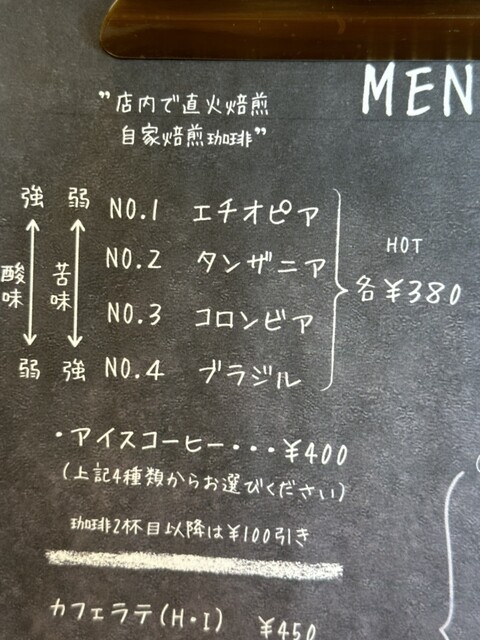 MEN
”店内で直火焙煎
自家焙煎珈琲”
強 弱 NO.1 エチオピア
NO.2 タンザニア
HOT
酸味 苦味
各¥380
NO.3 コロンビア
弱 強 NO.4 ブラジル
・アイスコーヒー・・・¥400
(上記4種類からお選びください)
珈琲2杯目以降は¥100引き
カフェラテ(H・I) ¥450